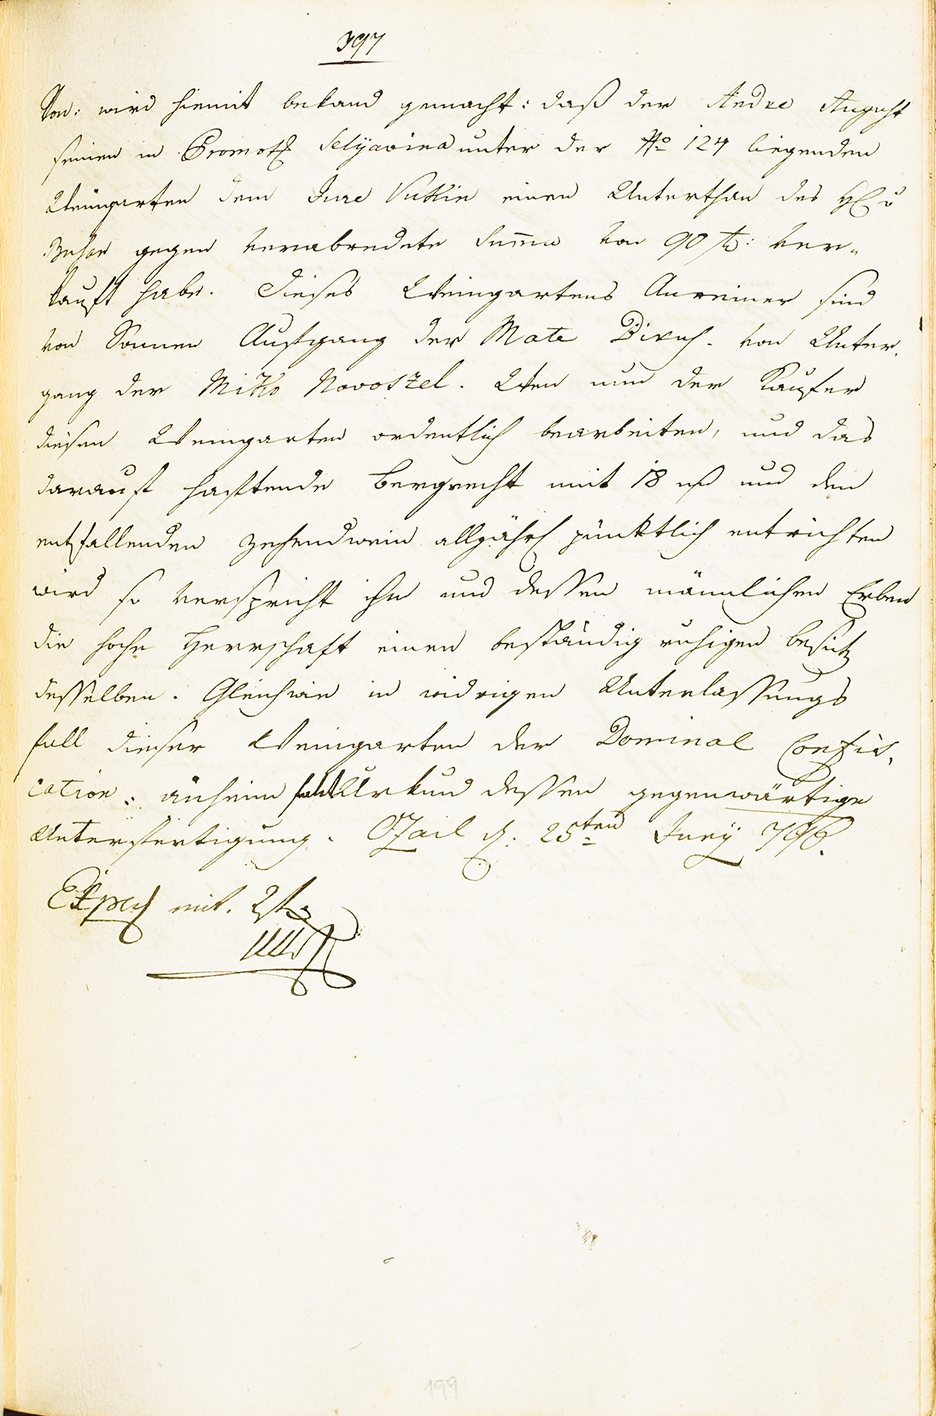 397
wird hiemit bekand gemacht: daß der Andre August
seinen in Promoth Selyavina unter der No 124 liegenden
Weingarten dem Jure Vukin einen Unterthan des
gegen verabredete Suma von 90 f: ver-
kauft habe. Dieses Weingartens Anreiner sind
von Sonnen Aufgang der Mato. von Unter-
gang der Miko Novoszel. Wen nun der Kaufer
diesen Weingarten ordentlich bearbeiten, und das
darauf haftende Bergrecht mit 18 und den
entfallenden Zehendwein alljährl pünktlich entrichten
wird so verspricht ihm und dessen mänlichen Erben
die hohe Herrschaft einen beständig ruhigen besitz
desselben. Gleichwie in widrigen Unterlassungs
fall dieser Weingarten der Dominal Confis-
cation: anheim fält Urkund dessen gegenwärtige
Unterfertigung. Ozail d: 25ten Juny 796.
mit. 2
199